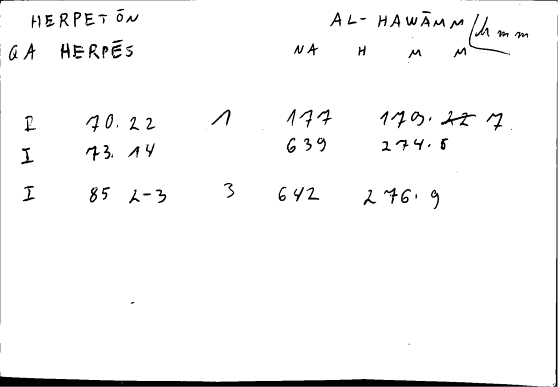 HERPETŌN AL-HAWĀMM hmm
GA HERPĒS NA H M M
I 70.22 1 177 179. 22 7
I 73. 14 639 274.5
I 85 2-3 3 642 276.9